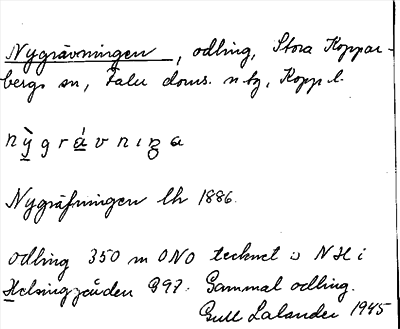 Nygrävningen, odling, Stora Koppar-
bergs sn, Falu doms. n tg, Kopp l.
nỳgrávnıŋa
Nygräfningen lh 1886.
odling 350 m ONO tecknet i NH i
Helsinggården 997. Gammal odling.
Gull Lalander 1945